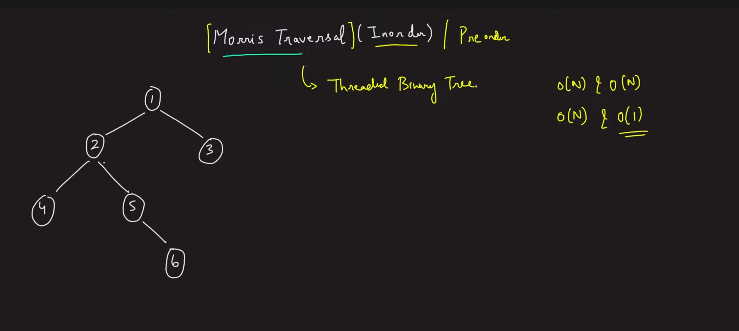 [Morris Traversal] (Inorder) / Preorder
↳ Threaded Binary Tree.
O(N) & O(N)
O(N) & O(1)
1
2
3
4
5
6